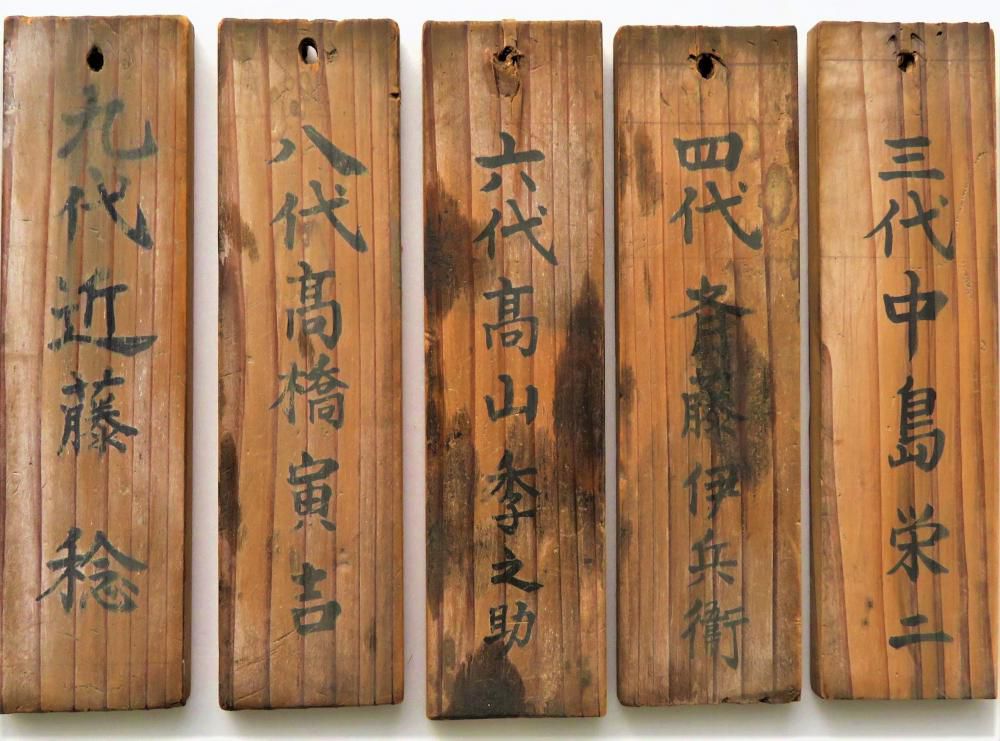 三代中島栄二
四代斉藤伊兵衛
六代高山季之助
八代高橋寅吉
九代近藤稔